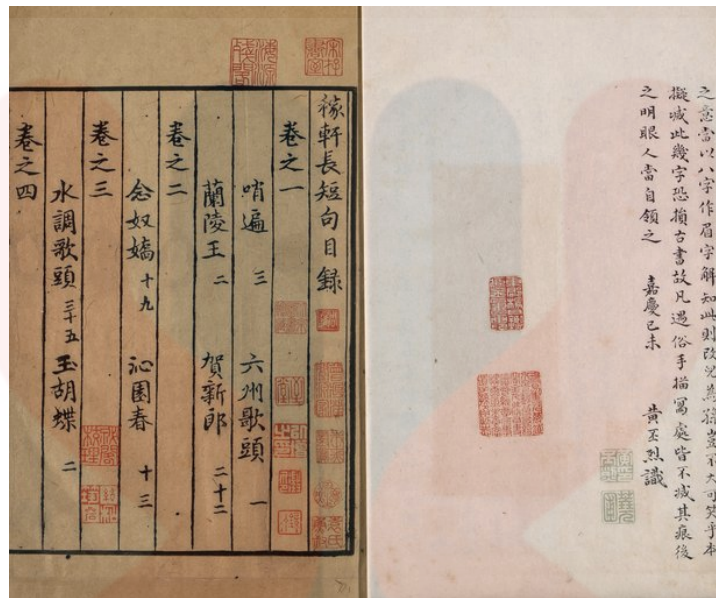 之意當以八字作眉字解知此則改兒為孫豈不大可笑乎本
擬滅此幾字恐損古書故凡遇俗手描寫處皆不滅其痕後
之明眼人當自領之 嘉慶己未 黃丕烈識
稼軒長短句目錄
卷之一
哨遍 三 六州歌頭 一
蘭陵王 二 賀新郎 二十二
卷之二
念奴嬌 十九 沁園春 十三
卷之三
水調歌頭 三十五 玉胡蝶 二
卷之四